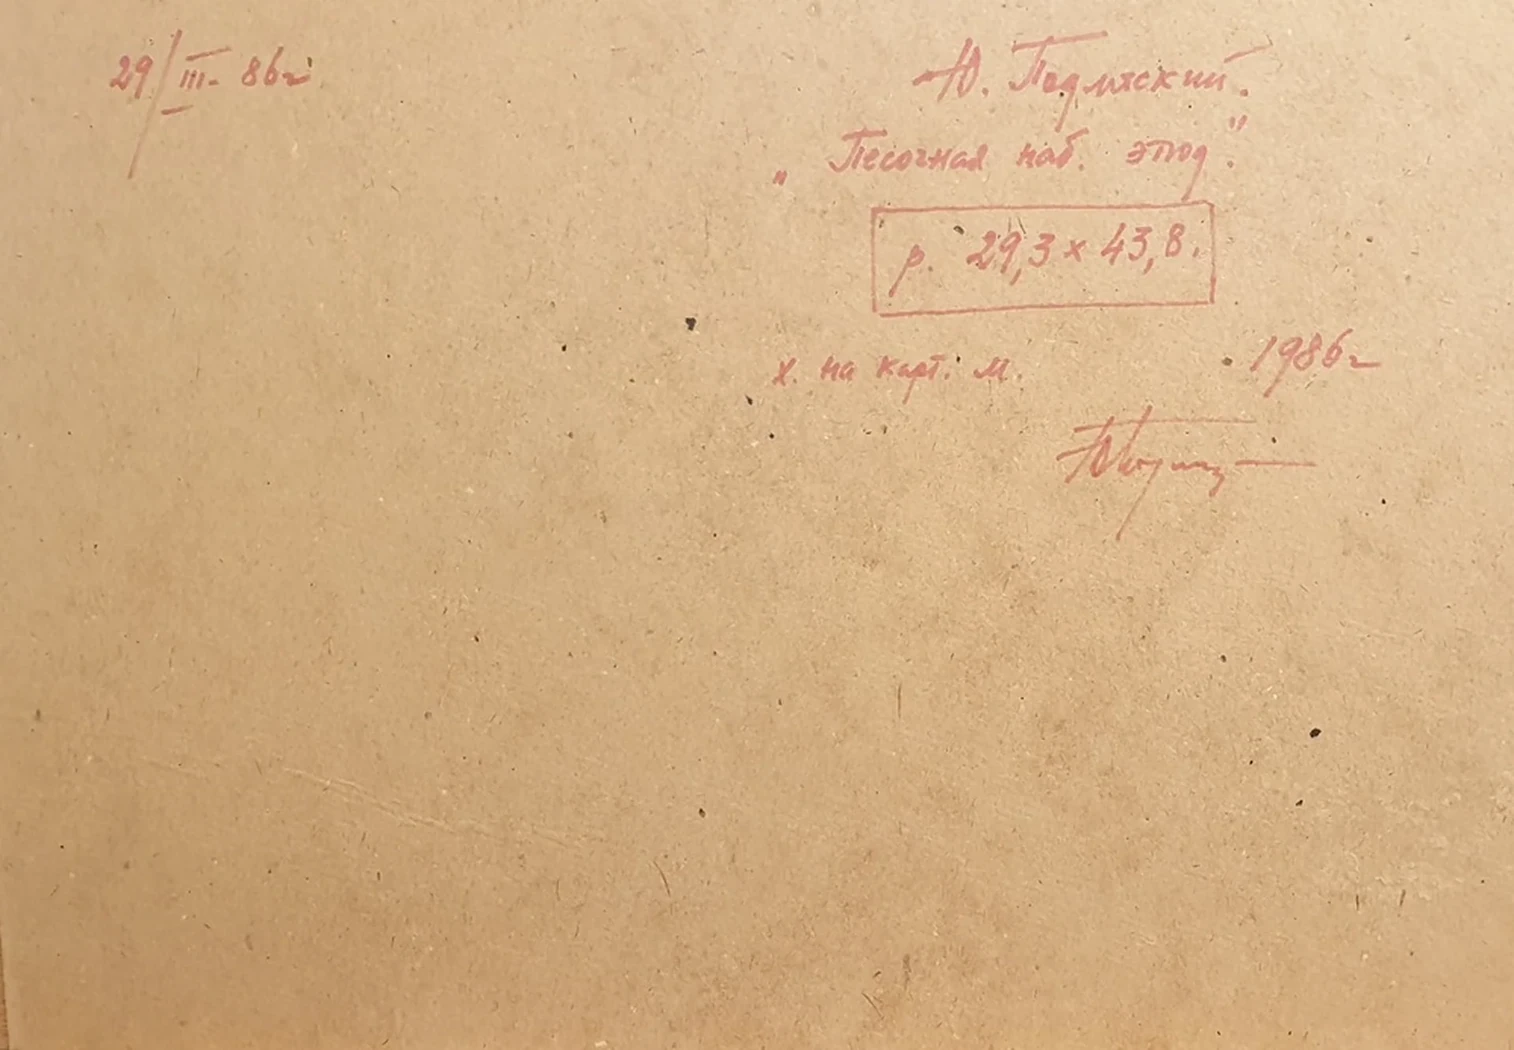 29/III-86г
Ю. Подляский.
„Песочная наб. этюд."
р. 29,3 x 43,8.
х. на карт. м. 1986г